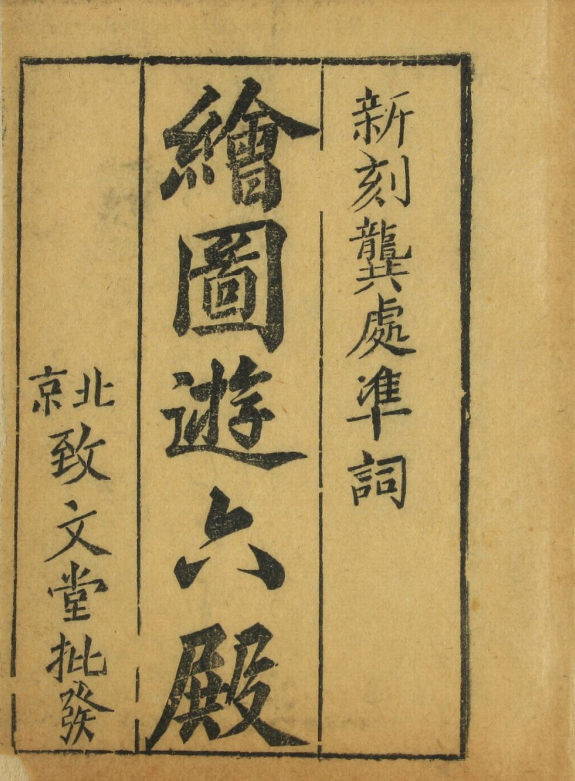 新刻龔處準詞
繪圖遊六殿
北京致文堂批發